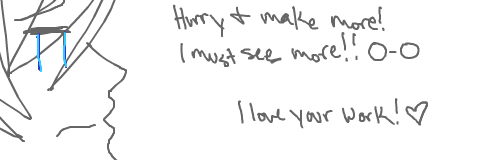 Hurry & make more!
I must see more!! O-O
I love your work! ♡